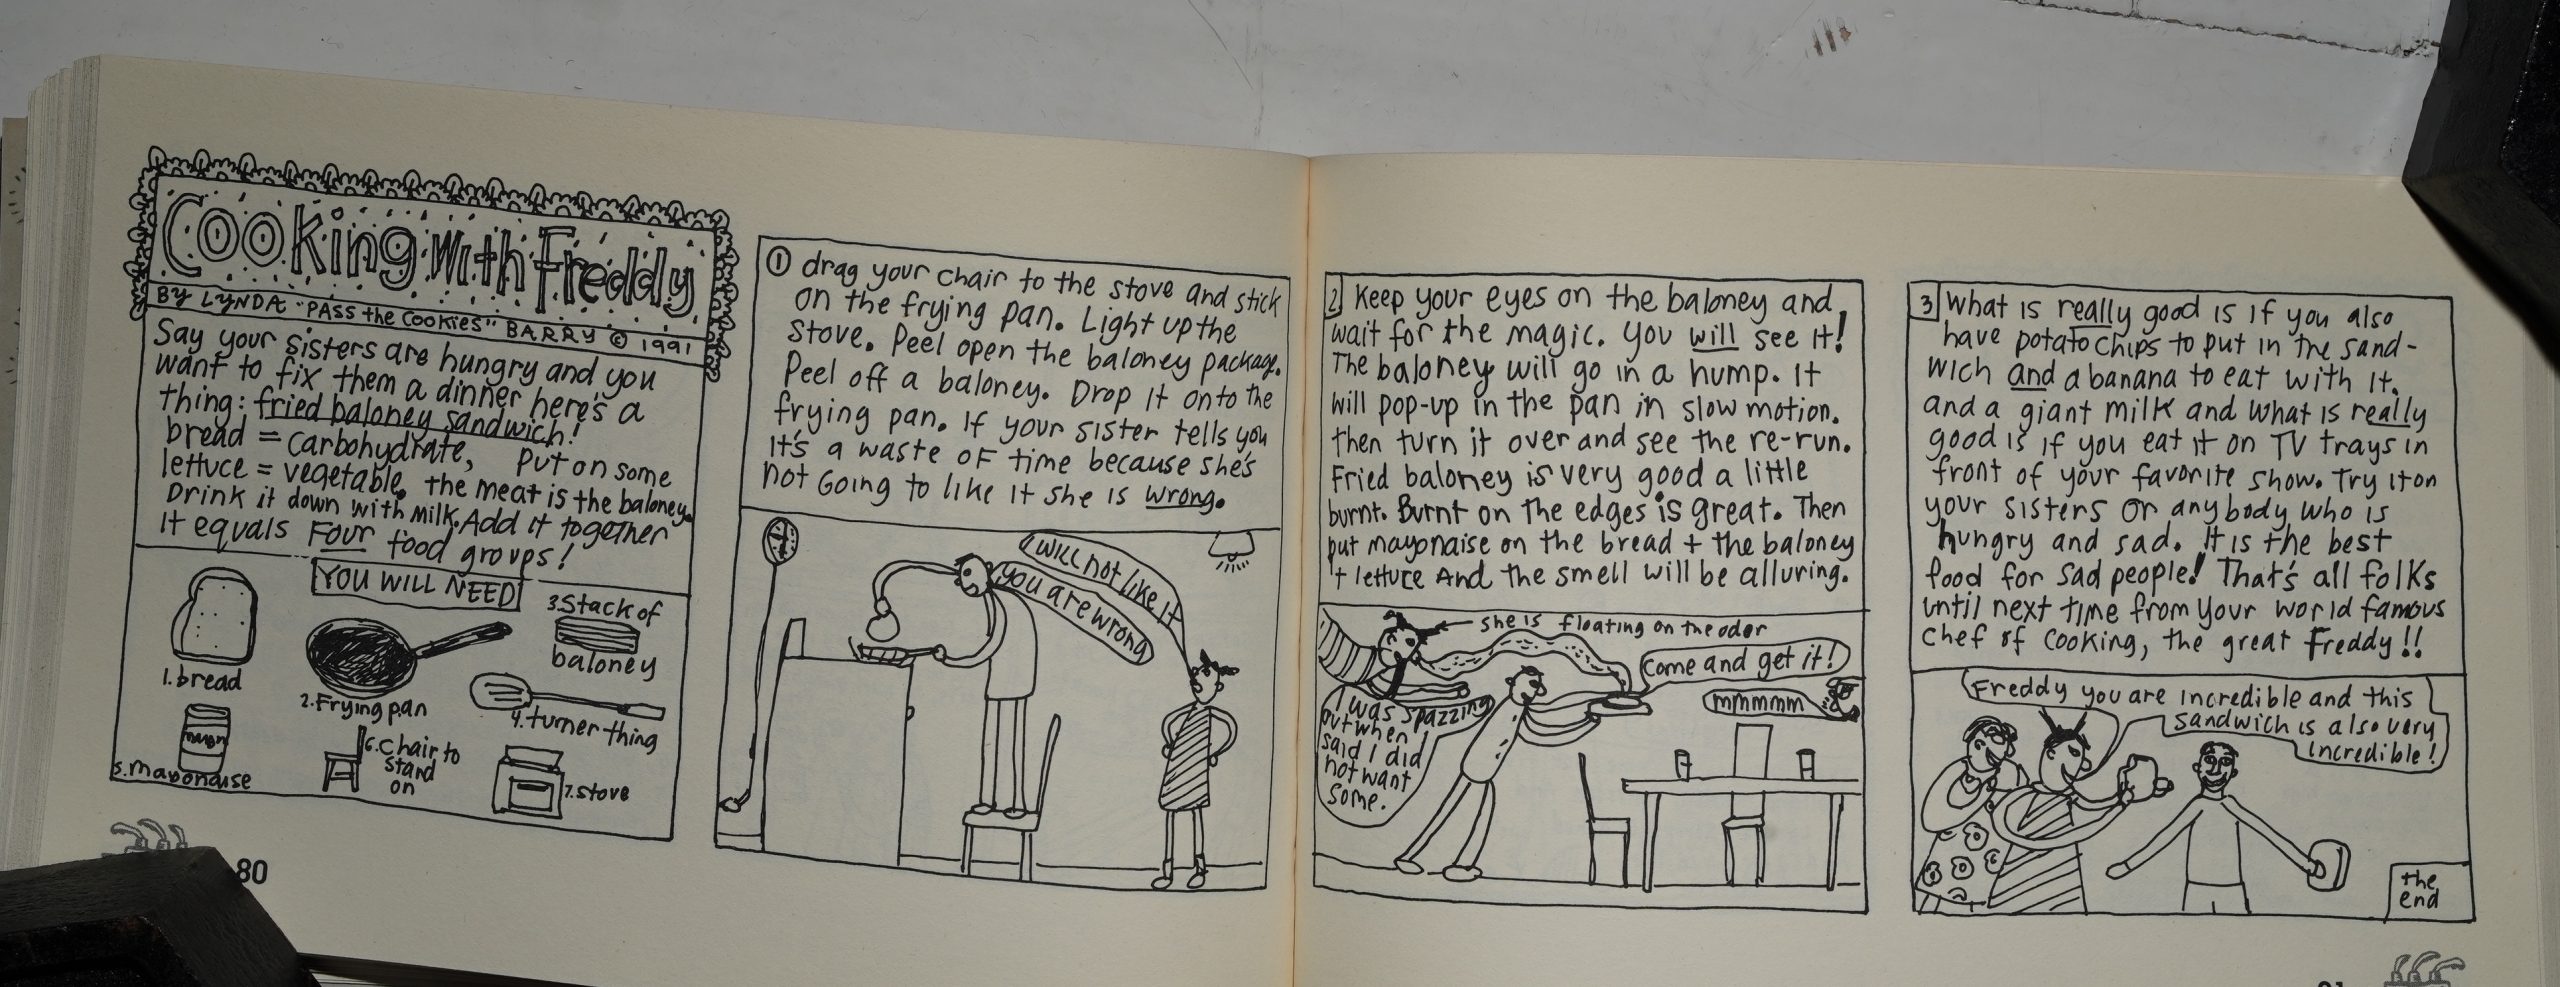 Cooking with Freddy
BY LYNDA "PASS the COOKIES" BARRY © 1991
Say your sisters are hungry and you
want to fix them a dinner here's a
thing: fried baloney sandwich!
bread = carbohydrate, Put on some
lettuce = vegetable. the meat is the baloney.
Drink it down with milk. Add it together
It equals Four food groups!
YOU WILL NEED
1. bread
2. Frying pan
3. Stack of
baloney
4. turner thing
5. mayonaise
6. Chair to
stand
on
7. stove
80
① drag your chair to the stove and stick
on the frying pan. Light up the
stove. Peel open the baloney package.
Peel off a baloney. Drop it onto the
frying pan. If your sister tells you
It's a waste of time because she's
not Going to like it she is wrong.
I will not like it
you are wrong
2 Keep your eyes on the baloney and
wait for the magic. You will see it!
The baloney will go in a hump. It
will pop-up in the pan in slow motion.
then turn it over and see the re-run.
Fried baloney is very good a little
burnt. Burnt on the edges is great. Then
put mayonaise on the bread + the baloney
+ lettuce And the smell will be alluring.
she is floating on the odor
Come and get it!
mmmmm
I was spazzing
out when I
said I did
not want
some.
3 What is really good is if you also
have potato chips to put in the sand-
wich and a banana to eat with it.
and a giant milk and what is really
good is if you eat it on TV trays in
front of your favorite show. Try it on
your sisters or anybody who is
hungry and sad. It is the best
food for sad people! That's all folks
until next time from your world famous
chef of cooking, the great Freddy!!
Freddy you are incredible and this
sandwich is also very
incredible!
the
end